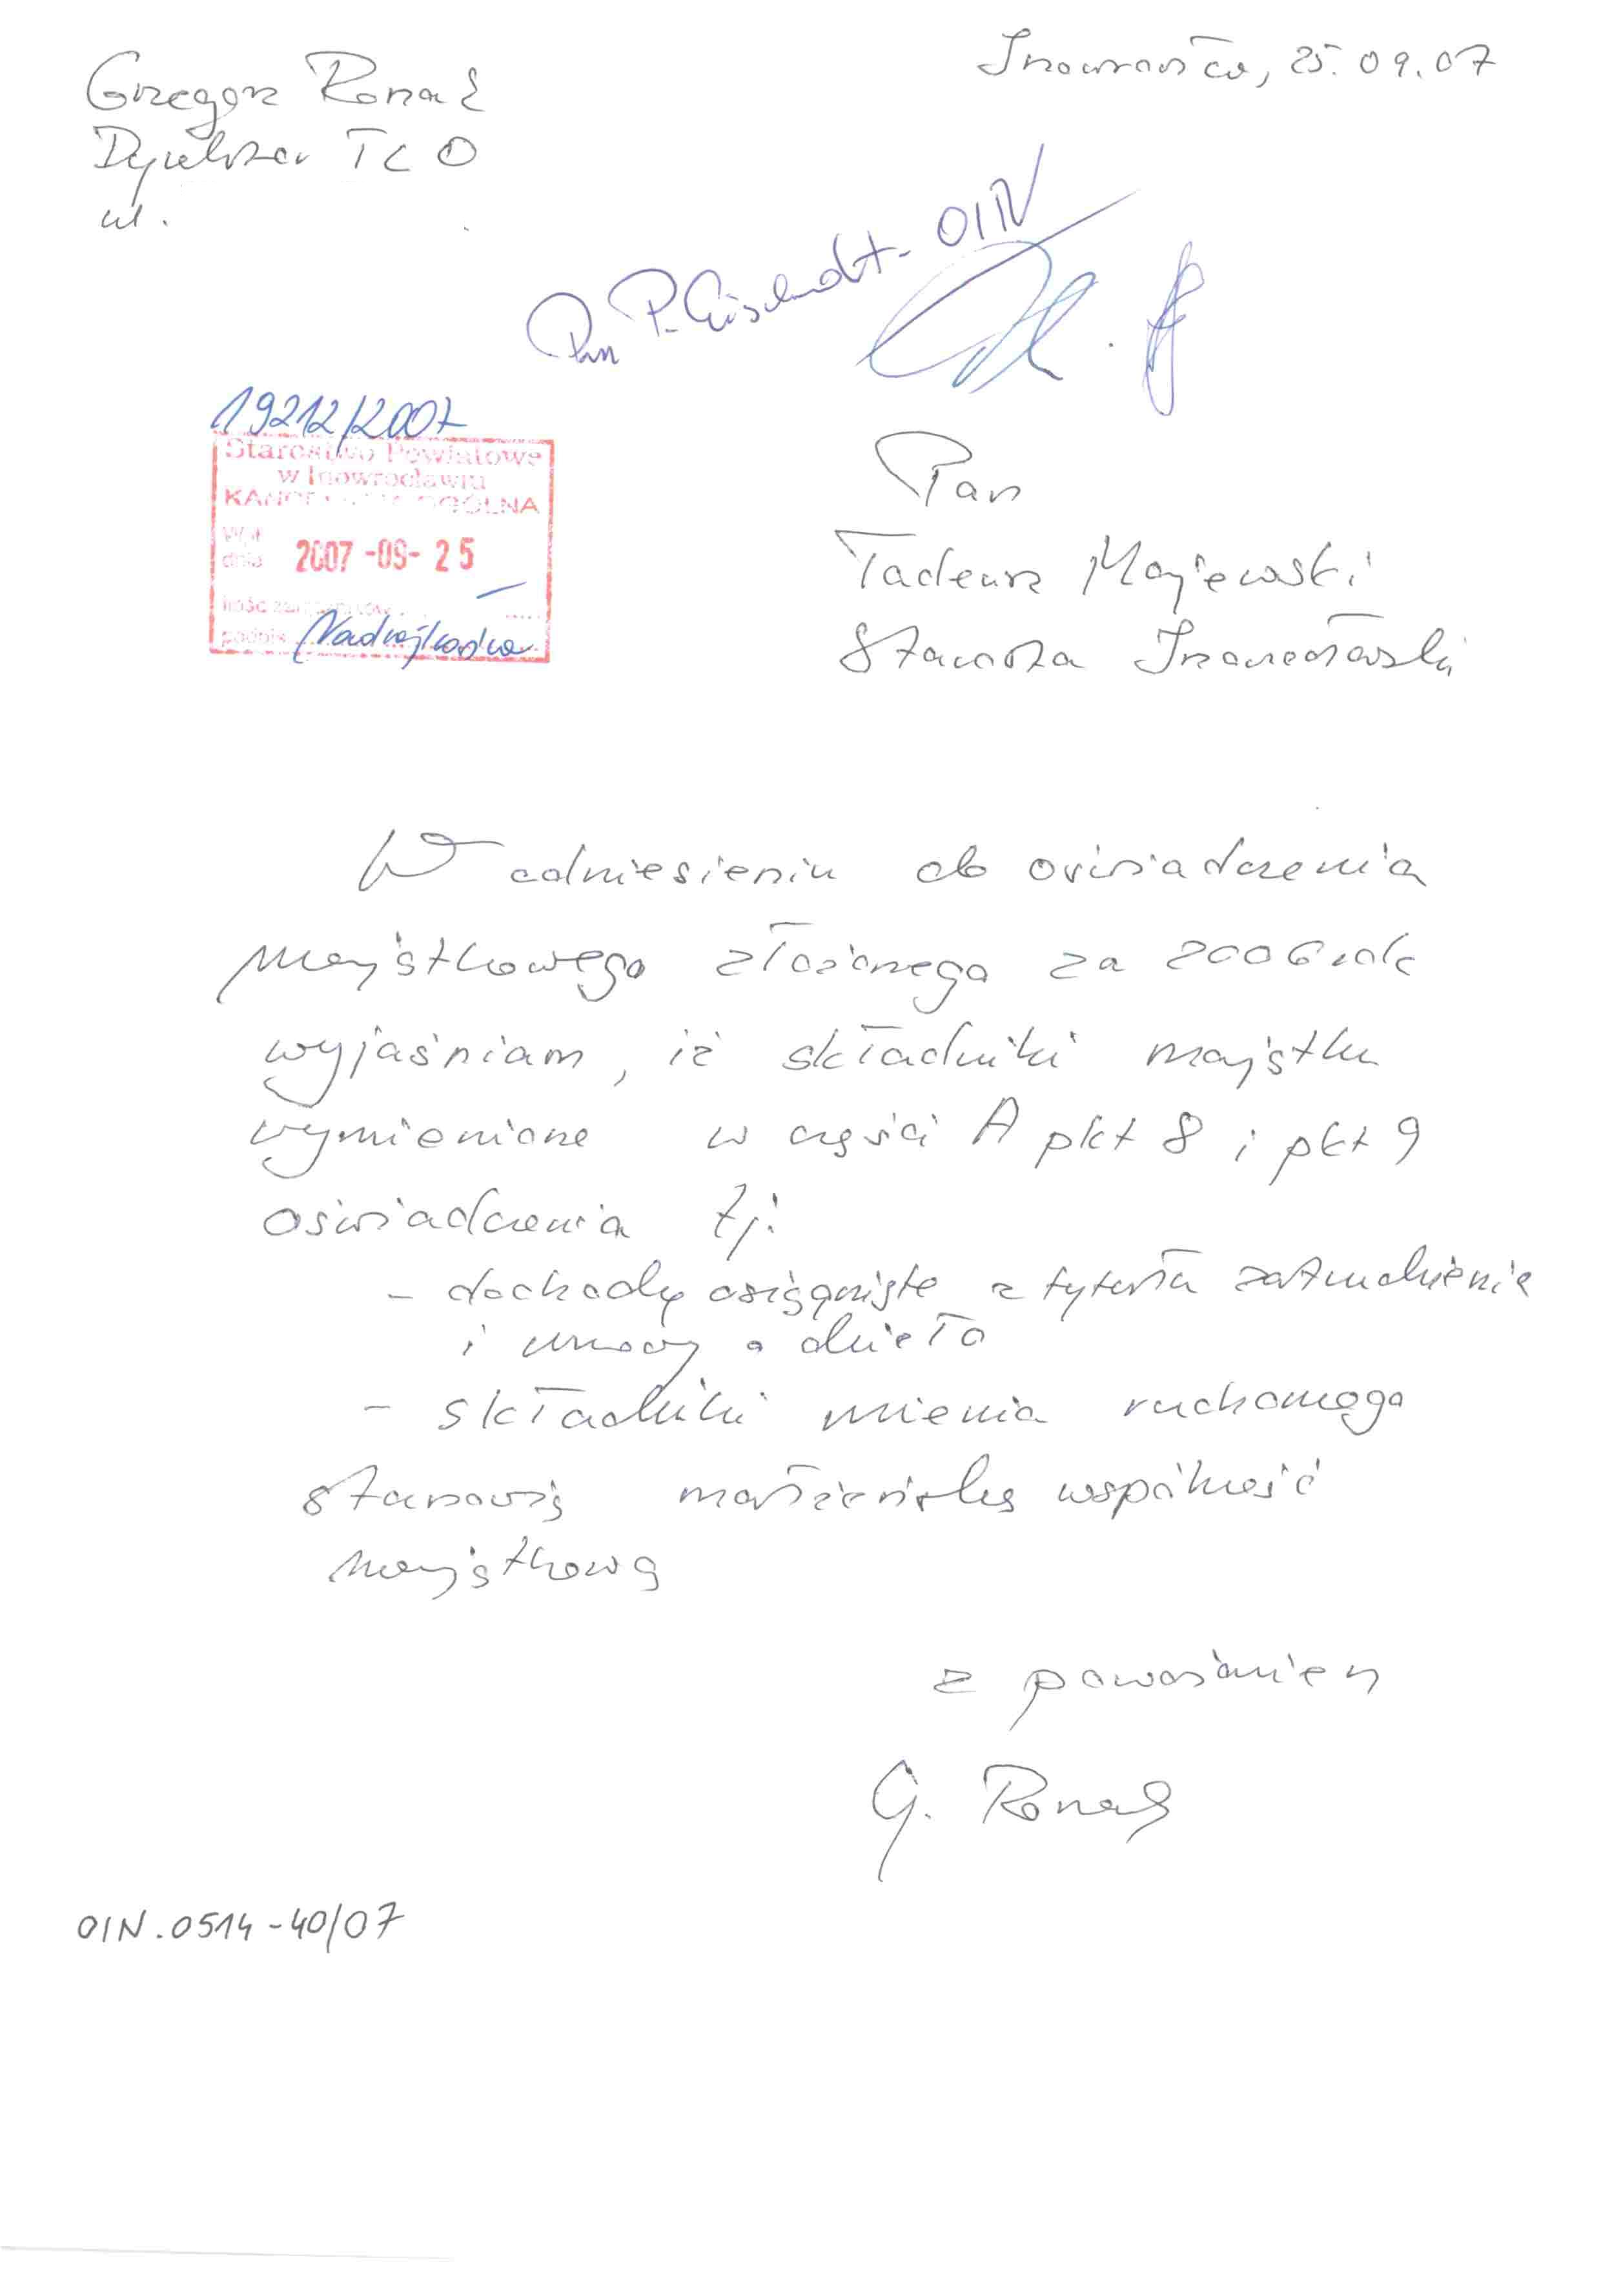 Inowrocław, 25.09.07
Grzegorz Roman
Dyrektor ICO
ul.
Pan P. - OIN
19212/2007
Starostwo Powiatowe
w Inowrocławiu
KANCELARIA OGÓLNA
Wpł.
dnia 2007-09-25
ilość załączników
podpis
Pan
Tadeusz Majewski
Starosta Inowrocławski
W odniesieniu do oświadczenia
majątkowego złożonego za 2006 rok
wyjaśniam, iż składniki majątku
wymienione w części A pkt 8 i pkt 9
oświadczenia tj:
- dochody osiągnięte z tytułu zatrudnienia
i umowy o dzieło
- składniki mienia ruchomego
stanowią małżeńską wspólność
majątkową
z poważaniem
G.
OIN.0514-40/07